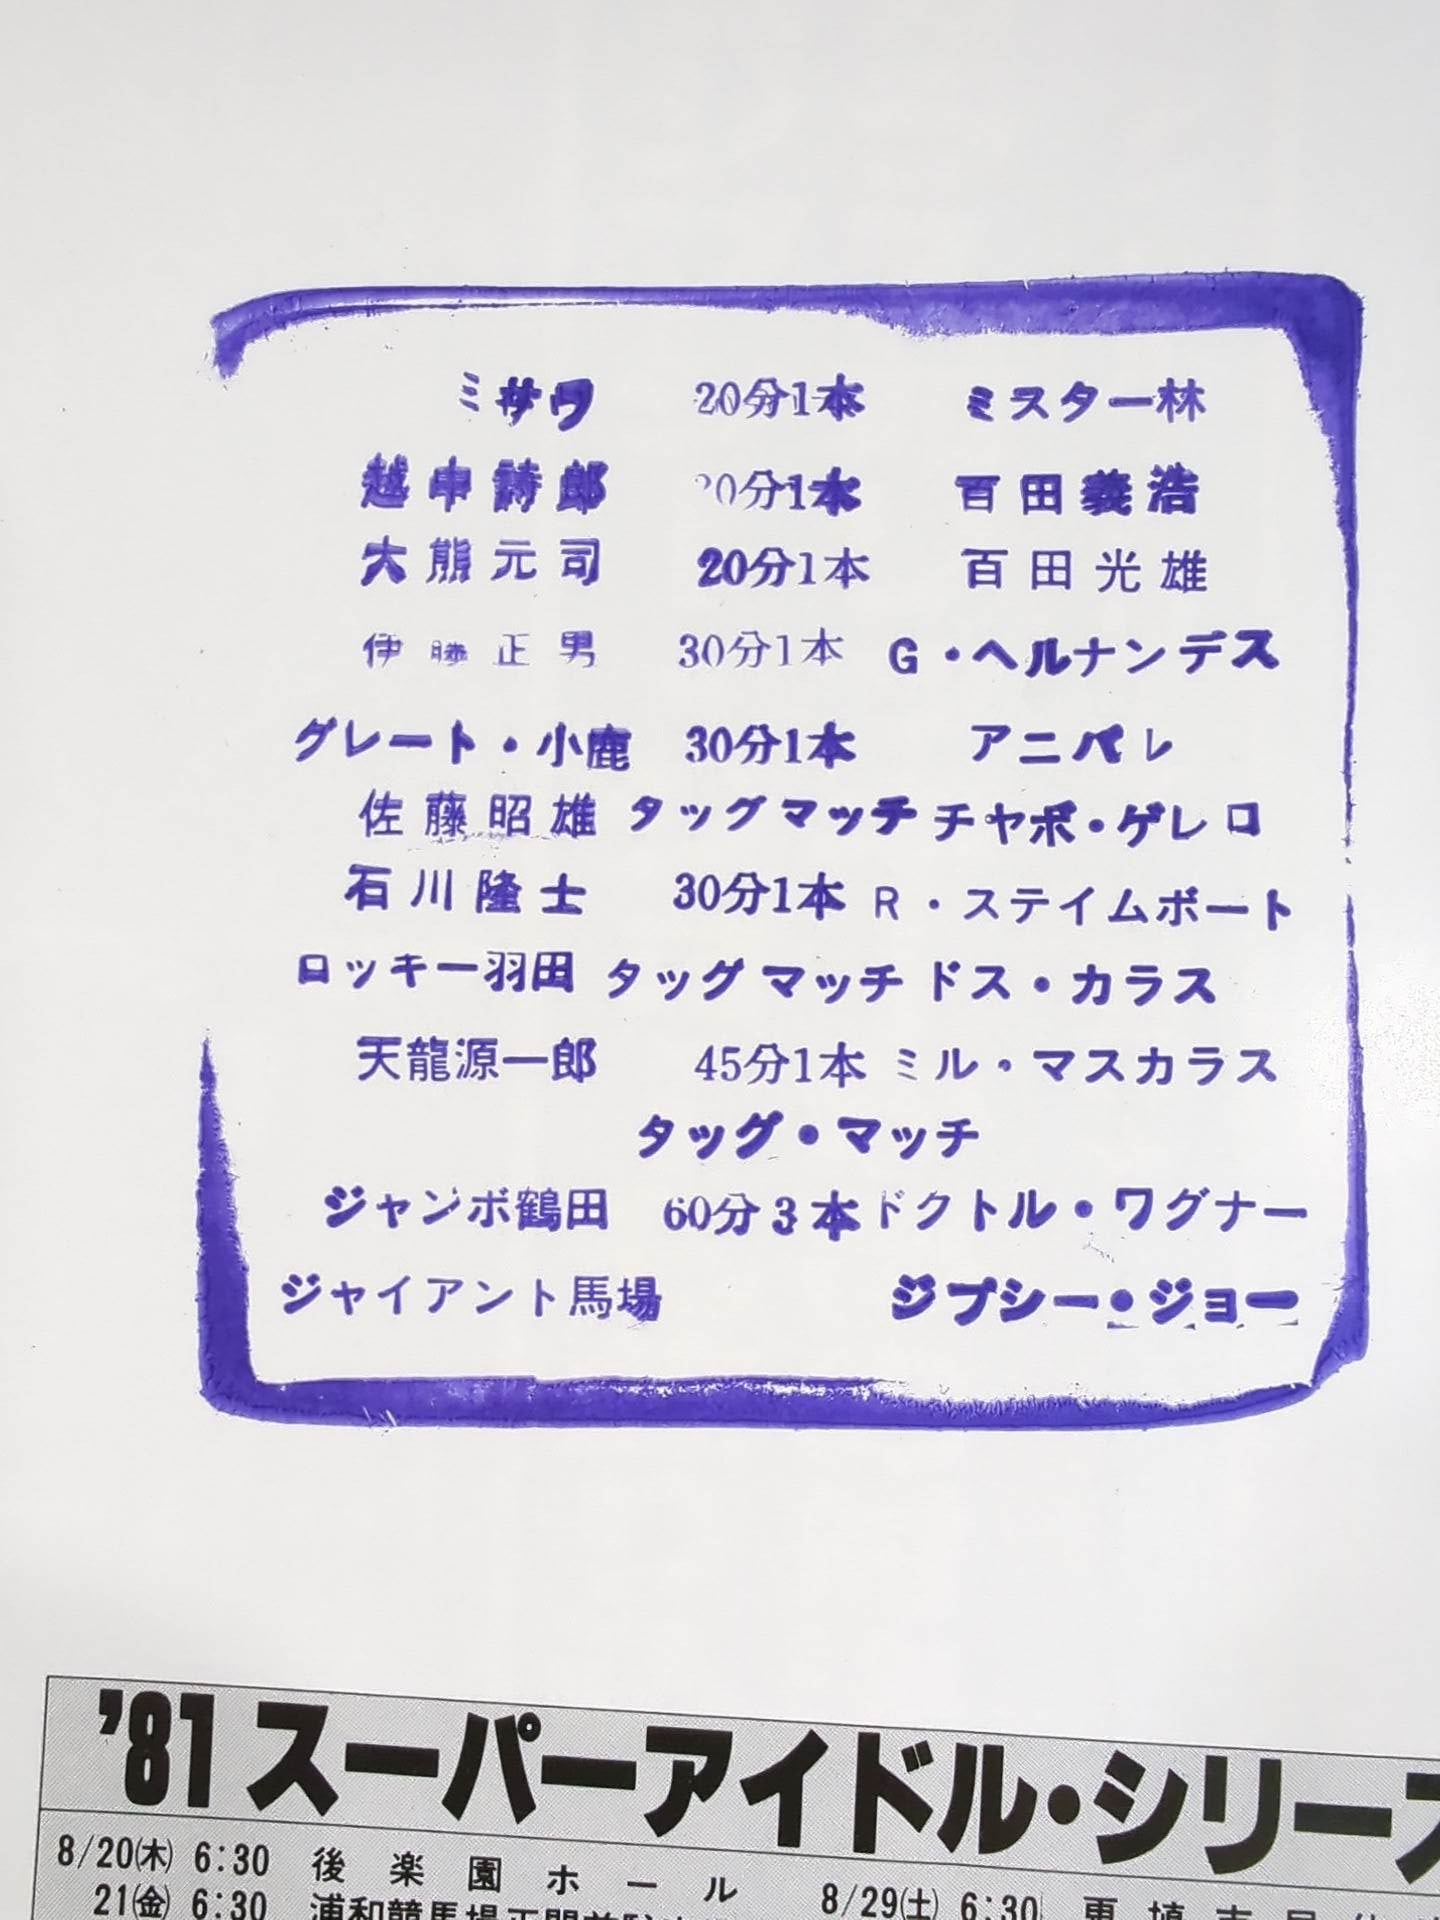 ミサワ 20分1本 ミスター林
越中詩郎 20分1本 百田義浩
大熊元司 20分1本 百田光雄
伊藤正男 30分1本 G・ヘルナンデス
グレート・小鹿 30分1本 アニバレ
佐藤昭雄 タッグマッチ チャボ・ゲレロ
石川隆士 30分1本 R・ステイムボート
ロッキー羽田 タッグマッチ ドス・カラス
天龍源一郎 45分1本 ミル・マスカラス
タッグ・マッチ
ジャンボ鶴田 60分3本 ドクトル・ワグナー
ジャイアント馬場 ジプシー・ジョー
'81スーパーアイドル・シリーズ
8/20(木) 6:30 後楽園ホール
21(金) 6:30 浦和競馬場正門前
8/29(土) 6:30